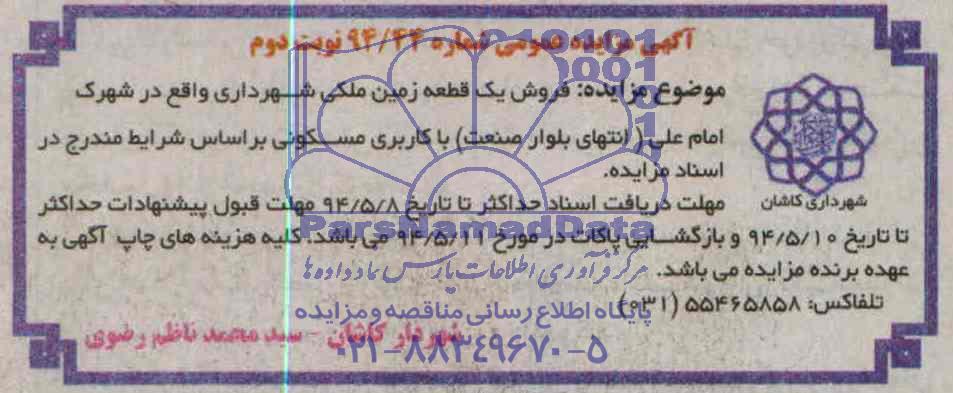 آگهی مزایده عمومی شماره ۹۴/۲۴ نوبت دوم
موضوع مزایده: فروش یک قطعه زمین ملکی شهرداری واقع در شهرک
امام علی (انتهای بلوار صنعت) با کاربری مسکونی براساس شرایط مندرج در
اسناد مزایده.
شهرداری کاشان
مهلت دریافت اسناد حداکثر تا تاریخ ۹۴/۵/۸ مهلت قبول پیشنهادات حداکثر
تا تاریخ ۹۴/۵/۱۰ و بازگشایی پاکات در مورخ ۹۴/۵/۱۱ می باشد. کلیه هزینه های چاپ آگهی به
عهده برنده مزایده می باشد.
تلفاکس: ۵۵۴۶۵۸۵۸ (۰۳۱)
شهردار کاشان - سید محمد ناظم رضوی
ParsNamadData
مرکز فرآوری اطلاعات پارس نماد داده ها
پایگاه اطلاع رسانی مناقصه و مزایده
۰۲۱-۸۸۳۴۹۶۷۰-۵